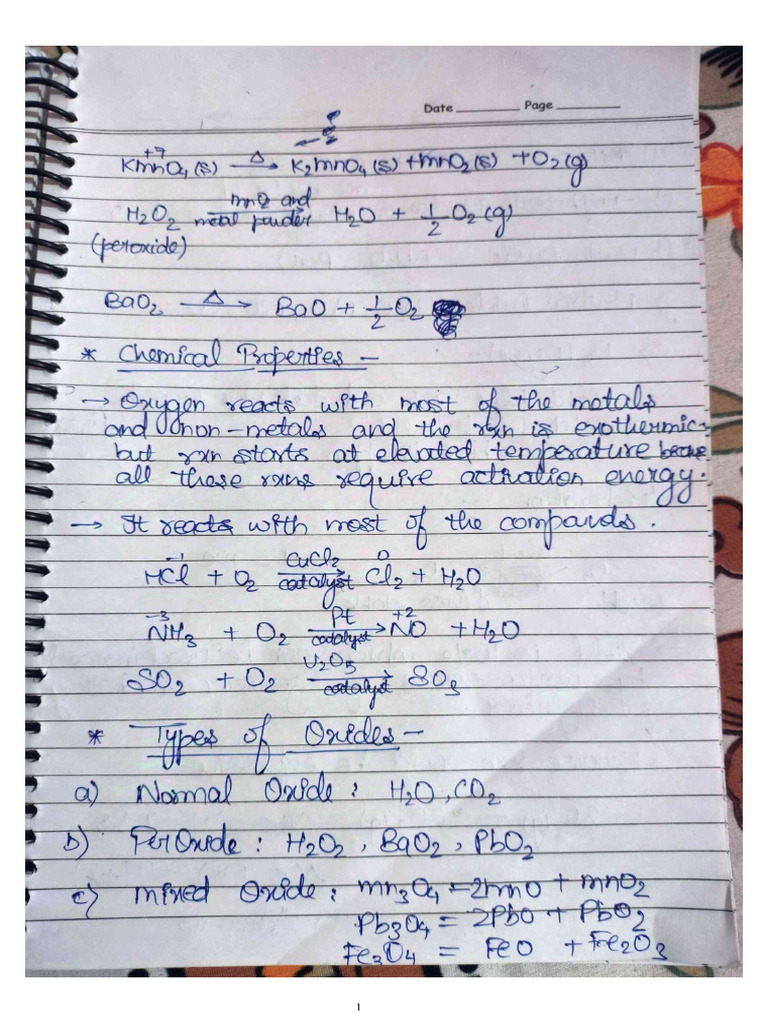 Date ________ Page ________
+7
KmnO4(s) —Δ→ K2mnO4(s) + mnO2(s) + O2(g)
mnO2 and
H2O2 ⟶ H2O + 1/2 O2(g)
metal powder
(peroxide)
BaO2 —Δ→ BaO + 1/2 O2
* Chemical Properties –
→ Oxygen reacts with most of the metals
and non-metals and the rxn is exothermic
but rxn starts at elevated temperature
all these rxns require activation energy.
→ It reacts with most of the compounds.
-1 CuCl2 0
HCl + O2 ⟶ Cl2 + H2O
catalyst
-3 Pt +2
NH3 + O2 ⟶ NO + H2O
catalyst
V2O5
SO2 + O2 ⟶ SO3
catalyst
* Types of Oxides –
a) Normal Oxide : H2O, CO2
b) PerOxide : H2O2, BaO2, PbO2
c) mixed Oxide : mn3O4 = 2mnO + mnO2
Pb3O4 = 2PbO + PbO2
Fe3O4 = FeO + Fe2O3
1